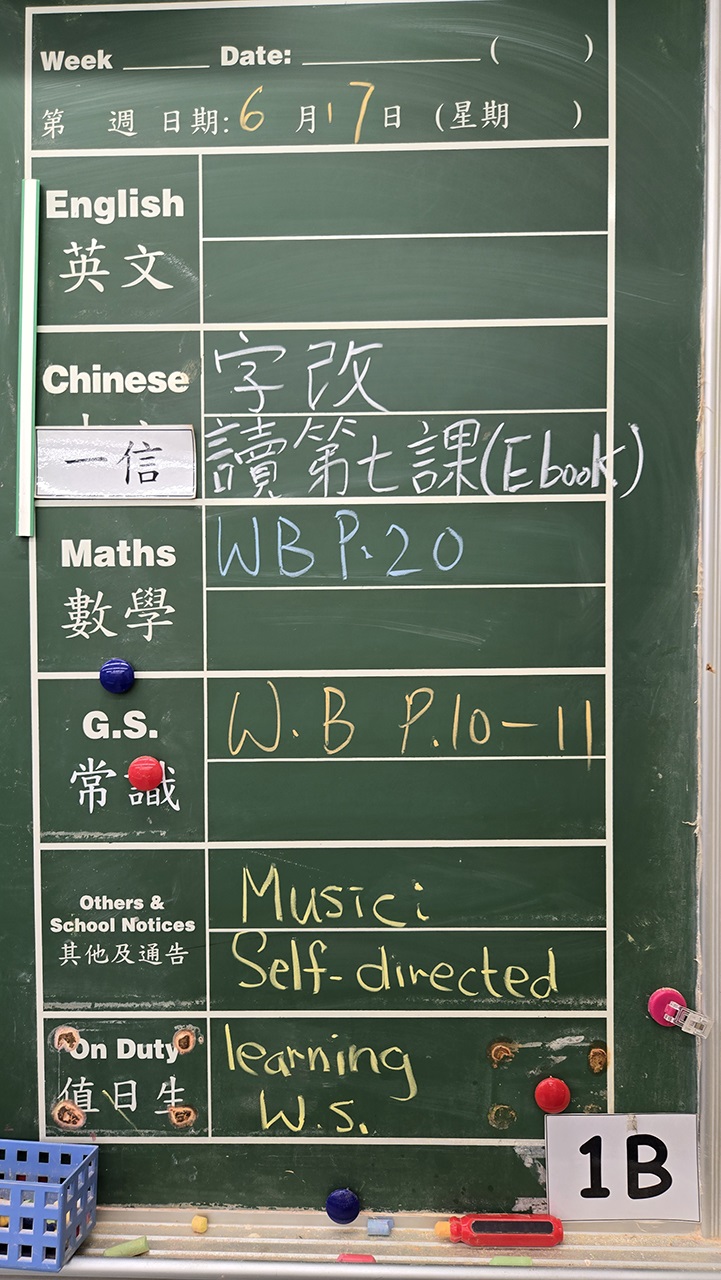 Week ______ Date: ____________ ( )
第 週 日期: 6 月 17 日 (星期 )
English
英文
Chinese 字改
一信 讀第七課(Ebook)
Maths WB P.20
數學
G.S. W.B P.10-11
常識
Others & School Notices Music:
其他及通告 Self-directed
On Duty learning
值日生 W.S.
1B